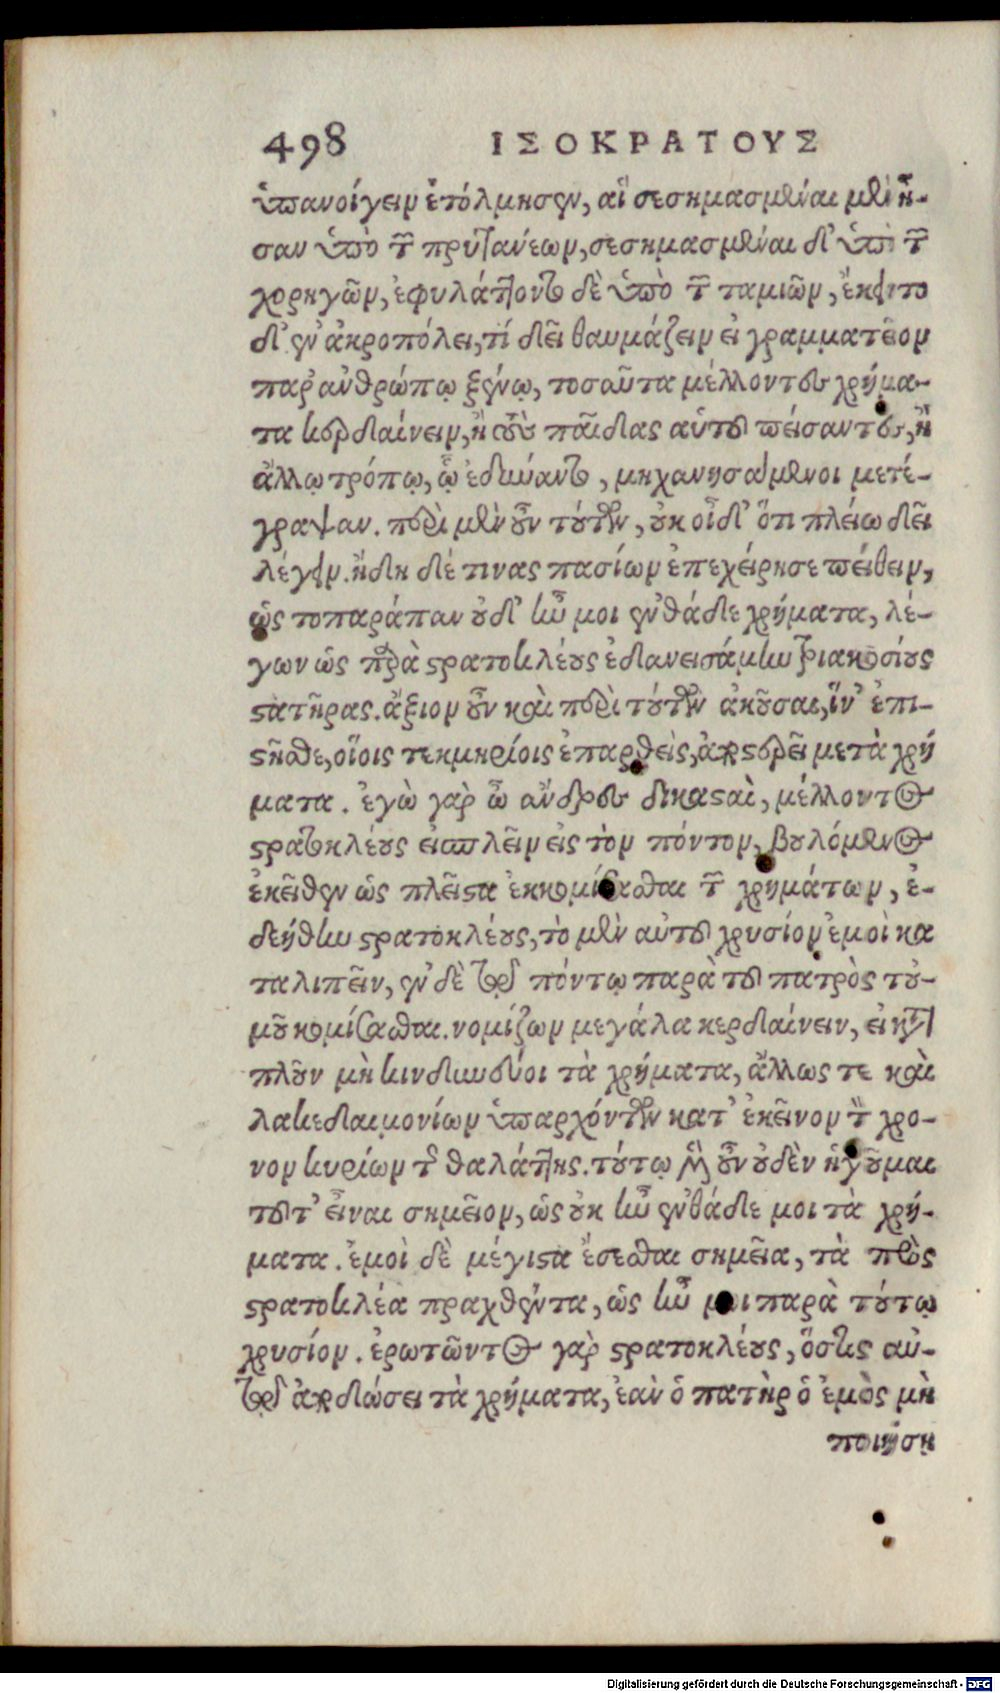 498 ΙΣΟΚΡΑΤΟΥΣ
ὑπανοίγειν ἐτόλμησαν, αἳ σεσημασμέναι μὲν ἦ-
σαν ὑπὸ τῶν πρυτανέων, σεσημασμέναι δ' ὑπὸ τῶν
χορηγῶν, ἐφυλάττοντο δὲ ὑπὸ τῶν ταμιῶν, ἔκειντο
δ' ἐν ἀκροπόλει, τί δεῖ θαυμάζειν εἰ γραμματεῖον
παρ' ἀνθρώπῳ ξένῳ, τοσαῦτα μέλλοντες χρήμα-
τα κερδαίνειν, ἢ τοὺς παῖδας αὐτοῦ πείσαντες, ἢ
ἄλλῳ τρόπῳ, ᾧ ἐδύναντο, μηχανησάμενοι μετέ-
γραψαν. περὶ μὲν οὖν τούτων, οὐκ οἶδ' ὅτι πλείω δεῖ
λέγειν. ἤδη δέ τινας πασίων ἐπεχείρησε πείθειν,
ὡς τοπαράπαν οὐδ' ἦν μοι ἐνθάδε χρήματα, λέ-
γων ὡς παρὰ στρατοκλέους ἐδανεισάμην τριακοσίους
στατῆρας. ἄξιον οὖν καὶ περὶ τούτων ἀκοῦσαι, ἵν' ἐπι-
στῆσθε, οἵοις τεκμηρίοις ἐπαρθεὶς, ἀποστερεῖ με τὰ χρή
ματα. ἐγὼ γὰρ ὦ ἄνδρες δικασταὶ, μέλλοντος
στρατοκλέους εἰσπλεῖν εἰς τὸν πόντον, βουλόμενος
ἐκεῖθεν ὡς πλεῖστα ἐκκομίσασθαι τῶν χρημάτων, ἐ-
δεήθην στρατοκλέους, τὸ μὲν αὐτοῦ χρυσίον ἐμοὶ κα
ταλιπεῖν, ἐν δὲ τῷ πόντῳ παρὰ τοῦ πατρὸς τοὐ-
μοῦ κομίσασθαι. νομίζων μεγάλα κερδαίνειν, εἰ κατὰ
πλοῦν μὴ κινδυνεύοι τὰ χρήματα, ἄλλως τε καὶ
λακεδαιμονίων ὑπαρχόντων κατ' ἐκεῖνον τὸν χρο-
νον κυρίων τῆς θαλάττης. τούτῳ μὲν οὖν οὐδὲν ἡγοῦμαι
τοῦτ' εἶναι σημεῖον, ὡς οὐκ ἦν ἐνθάδε μοι τὰ χρή-
ματα. ἐμοὶ δὲ μέγιστα ἔσεσθαι σημεῖα, τὰ πρὸς
στρατοκλέα πραχθέντα, ὡς ἦν μοι παρὰ τούτῳ
χρυσίον. ἐρωτῶντος γὰρ στρατοκλέους, ὅστις αὐ-
τῷ ἀποδώσει τὰ χρήματα, ἐὰν ὁ πατὴρ ὁ ἐμὸς μὴ
ποιήσῃ
Digitalisierung gefördert durch die Deutsche Forschungsgemeinschaft - DFG